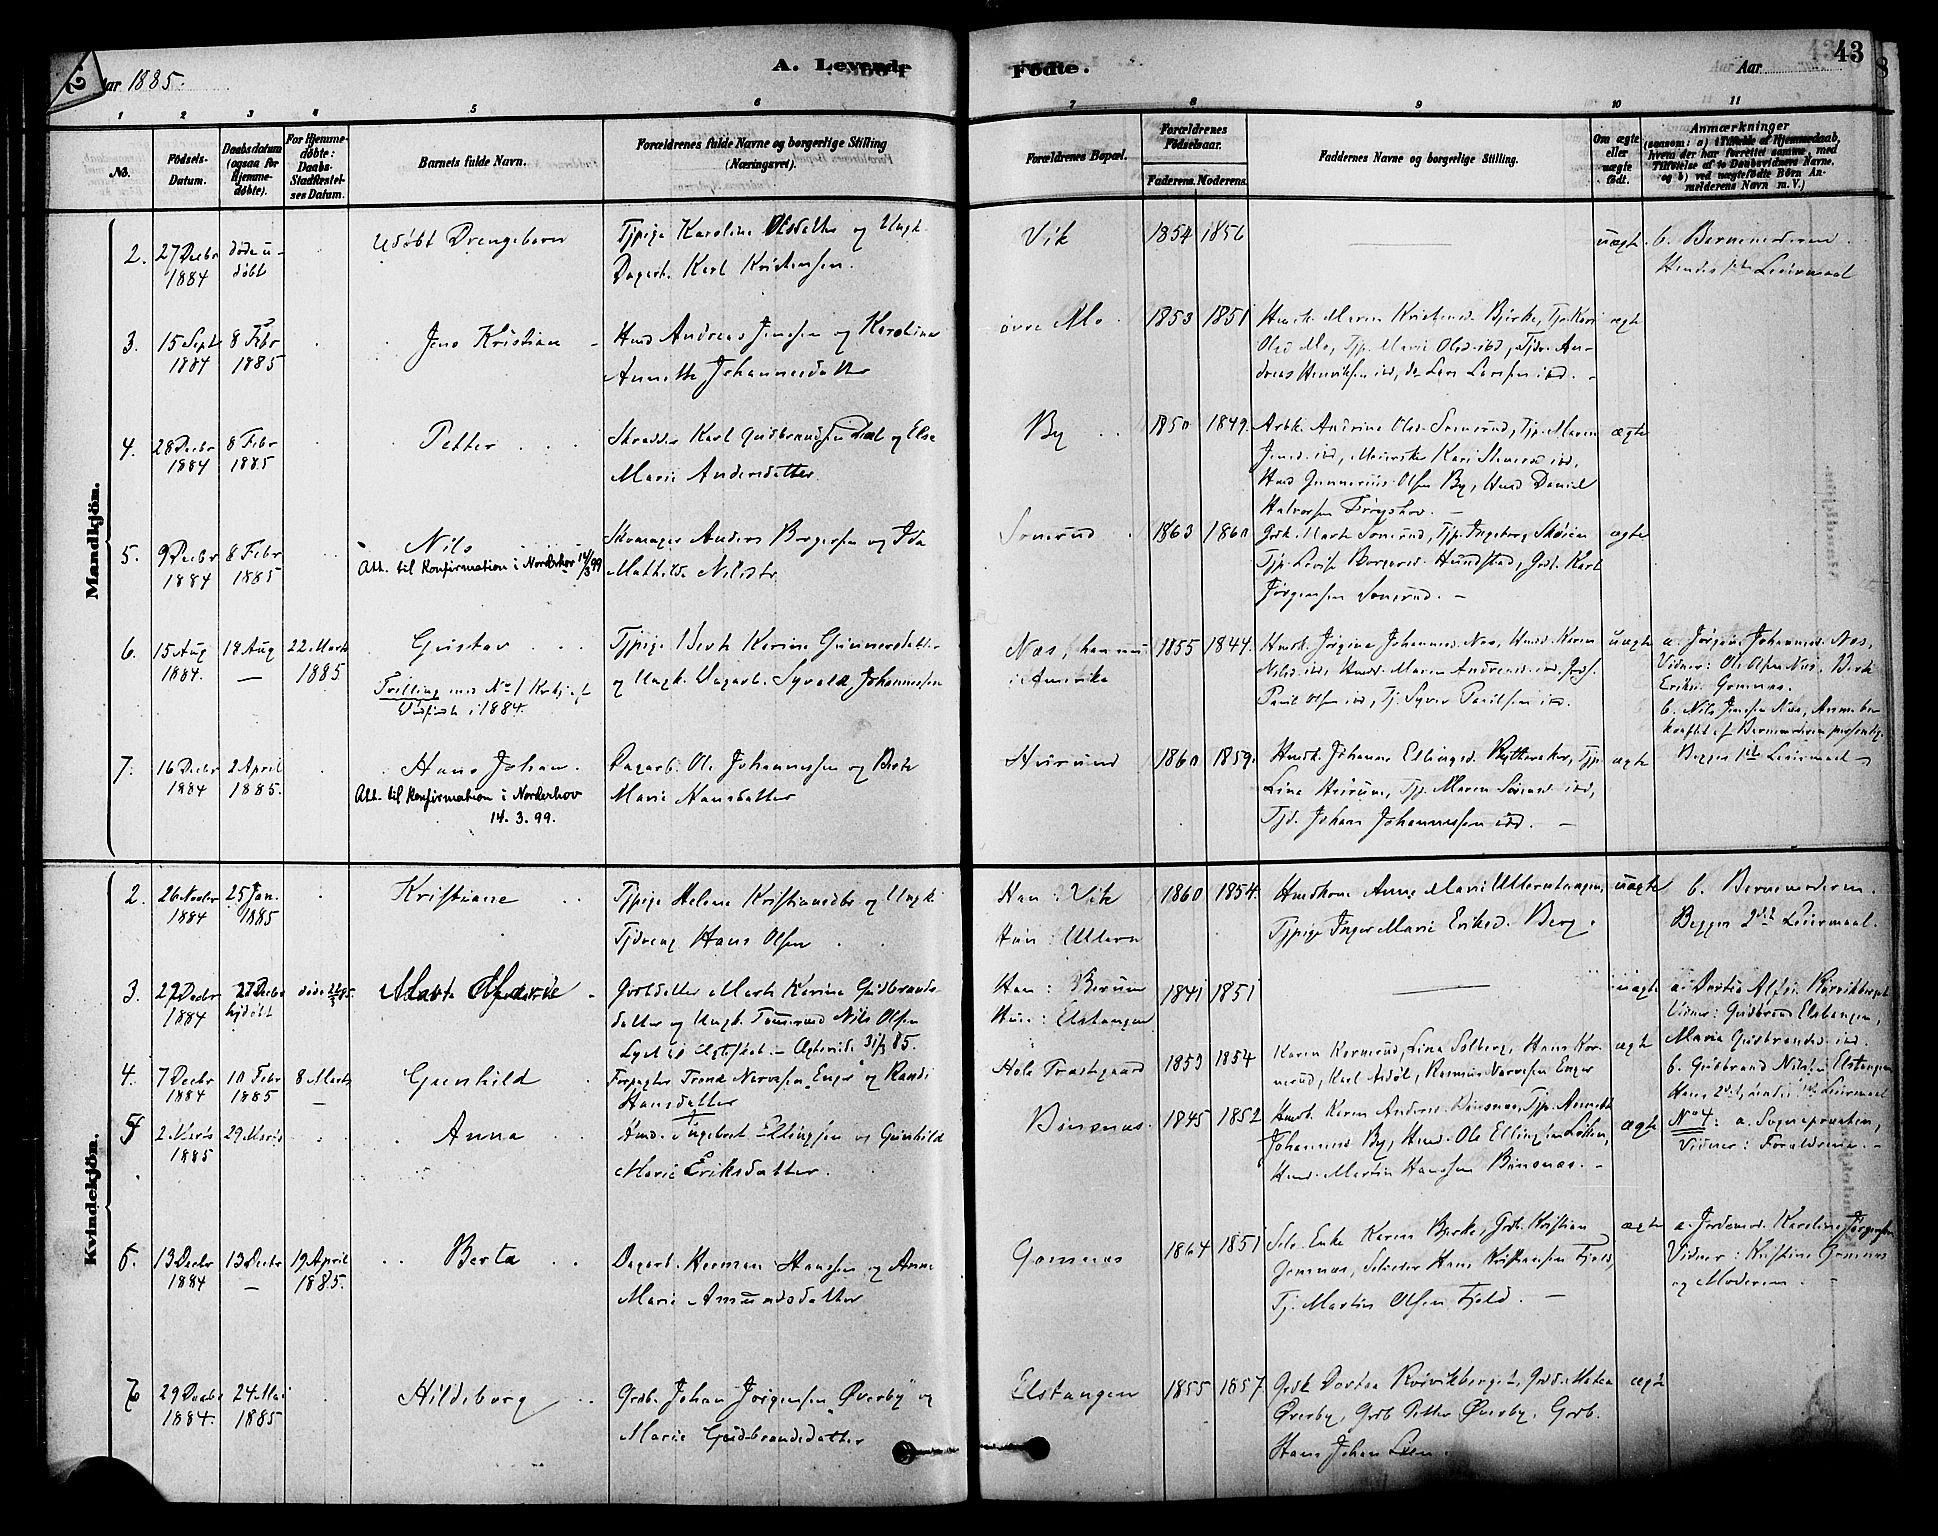 Aar 1885.
A. Levende
Fødte.
Aar
43
1 2 3 4 5 6 7 8 9 10 11
No.
Fødsels-Datum.
Daabsdatum (ogsaa for Hjemmedøbte).
For Hjemmedøbte: Daabs-Stadfæstelses Datum.
Barnets fulde Navn.
Forældrenes fulde Navne og borgerlige Stilling (Næringsvei).
Forældrenes Bopæl.
Forældrenes Fødselsaar.
Faderens. Moderens.
Faddernes Navne og borgerlige Stilling.
Om ægte eller uægte født.
Anmærkninger
(saasom: a) i Tilfælde af Hjemmedaab, hvem der har forrettet samme, med Tilføielse af to Daabsvidners Navne. og b) ved uægtefødte Børn Anmelderens Navn m. V.)
Mandkjön.
2. 27 Decbr 1884 døde udøbt
Udøbt Drengebarn
Tjpige Karoline Olsdatter og Ungk.
Dagarb. Karl Kristensen.
Vik 1854 1856
uægte b. Barnemoderen.
Hendes 1ste Leiermaal
3. 15 Sept 1884 8 Febr 1885
Jens Kristian
Husmd Andreas Jensen og Karoline
Annette Johannesdatter
øvre Mo 1853 1851
Husk. Maren Kristensd. Bjerke, Tjp. Kari
Olsd Mo, Tjp. Marie Olsd ibd, Tjdr. An-
dreas Henriksen ibd, do Lars Larsen ibd.
ægte
4. 28 Decbr 1884 8 Febr 1885
Petter
Skrædder Karl Gudbrandsen Dæl og Else
Marie Andersdatter.
By 1850 1849.
Arbk. Andrine Olsd. Sonerud, Tjp. Maren
Jensd ibd, Meierske Kari Stenersd ibd,
Husmd Gunnerius Olsen By, Husmd Daniel
Halvorsen Frøyshov.
ægte
5. 9 Decbr 1884 8 Febr 1885
Nils
Att. til Konfirmation i Norderhov 14/3 99
Skomager Anders Borgersen og Ida
Mathilde Nilsdtr.
Sonerud 1863 1860
Grdk. Marte Sonerud, Tjp. Ingeborg Skøien
Tjp. Lovise Borgersd. Hundstad, Grdb. Karl
Jørgensen Sonerud.
ægte
6. 15 Aug 1884. 18 Aug 22 Marts 1885
Gustav
Tvilling med No 1 Kvkj. af
i 1884.
Tjpige Berte Karine Gunnersdatter
og Ungk. Dagarb. Syvald Johannessen
Næs, han nu
i Amerika
1855 1844.
Husk. Jørgine Johannesd. Næs, Husk. Karen
Nilsd ibd, Husk. Maren Andrensd ibd, Grdf.
Paul Olsen ibd, Tj. Syver Paulsen ibd.
uægte
a. Jørgine Johannesd. Næs,
Vidner: Ole Olsen Næs, Berte
Eriksd. Gomnæs.
b. Nils Jensen Næs, Anm. be-
kræftet af Barnemoderen personlig.
Begges 1ste Leiermaal
7. 16 Decbr 1884 2 April 1885.
Hans Johan.
Att. til Konfirmation i Norderhov
14. 3. 99.
Dagarb. Ole Johannessen og Berte
Marie Hansdatter
Hurum 1860 1859.
Husk. Johanne Ellingsd. Rytteraker, Tjp.
Line Hurum, Tjp. Maren Sørensd ibd,
Tjd. Johan Johannessen ibd.
ægte
Kvindekjön.
2. 26 Novbr 1884 25 Jan. 1885
Kristiane
Tjpige Helene Kristiansdtr og Ungk.
Tjdreng Hans Olsen
Han: Vik
Hun: Ullern
1860 1854.
Husmdkone Anne Marie Ullerntangen,
Tjpige Inger Marie Eriksd. Berg.
uægte
b. Barnemoderen.
Begges 2det Leiermaal.
3. 27 Decbr 1884 27 Decbr hjdøbt
Marta
Grdbdatter Marte Karine Gudbrands-
datter og Ungk. Tømmermd Nils Olsen
Lyst til Ægteskab. 31/3 85.
Han: Bærum
Hun: Elstangen
1841 1851
uægte
a. Dortea Alfsd. Rørvikberget
Vidner: Gudbrand Elstangen,
Maria Gudbrandsd. ibd.
b. Gudbrand Nilsen Elstangen
Hans 2det, 1ste Leiermaal
4. 7 Decbr 1884 10 Febr 1885 8 Marts
Gunhild
Forpagter Trond Narvesen "Enger" og Randi
Hansdatter
Hole Præstegaard 1853 1854
Karen Kornerud, Lina Solberg, Hans Kor-
nerud, Karl Asdøl, Rasmus Narvesen Enger
ægte
No 4: a. Sognepræsten,
Vidner: Forældrene.
5 2 Marts 1885 29 Marts
Anna
Husmd. Ingebret Ellingsen og Gunhild
Marie Eriksdatter.
Bønsnæs. 1845 1852
Husk. Karen Andersd. Bønsnæs, Tjp. Annette
Johannesd By, Husmd. Ole Ellingsen Løken,
Husmd. Martin Hanssen Bønsnæs.
ægte
6. 13 Decbr 1884 13 Decbr 19 April 1885.
Berta
Dagarb. Herman Hanssen og Anne
Marie Amundsdatter
Gomnæs 1864 1851
Enke Karen Bjerke, Grdb. Kristian
Gomnæs, Hans Kristiansen Fjeld,
Tj. Martin Olsen Fjeld.
ægte
a. Jordemod. Karoline Jørgensen
Vidner: Kristine Gomnæs
og Moderen.
7 29 Decbr 1884. 24 Mai 1885
Hildeborg
Grdb. Johan Jørgensen "Øverby" og
Marie Gudbrandsdatter
Elstangen 1855 1857
Grdk Dortea Rørvikberget, Grdk. Matea
Øverby, Grdb Petter Øverby, Grdb.
Hans Johan Lien.
ægte